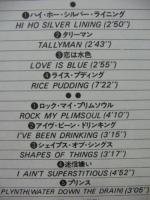 ❶ハイ・ホー・シルバー・ライニング
HI HO SILVER LINING (2'50")
❷タリーマン
TALLYMAN (2'43")
❸恋は水色
LOVE IS BLUE (2'55")
❹ライス・プディング
RICE PUDDING (7'22")
❶ロック・マイ・プリムソウル
ROCK MY PLIMSOUL (4'10")
❷アイヴ・ビーン・ドリンキング
I'VE BEEN DRINKING (3'15")
❸シェイプス・オブ・シングス
SHAPES OF THINGS (3'17")
❹迷信嫌い
I AIN'T SUPERSTITIOUS (4'52")
❺プリンス
PLYNTH (WATER DOWN THE DRAIN) (3'05")